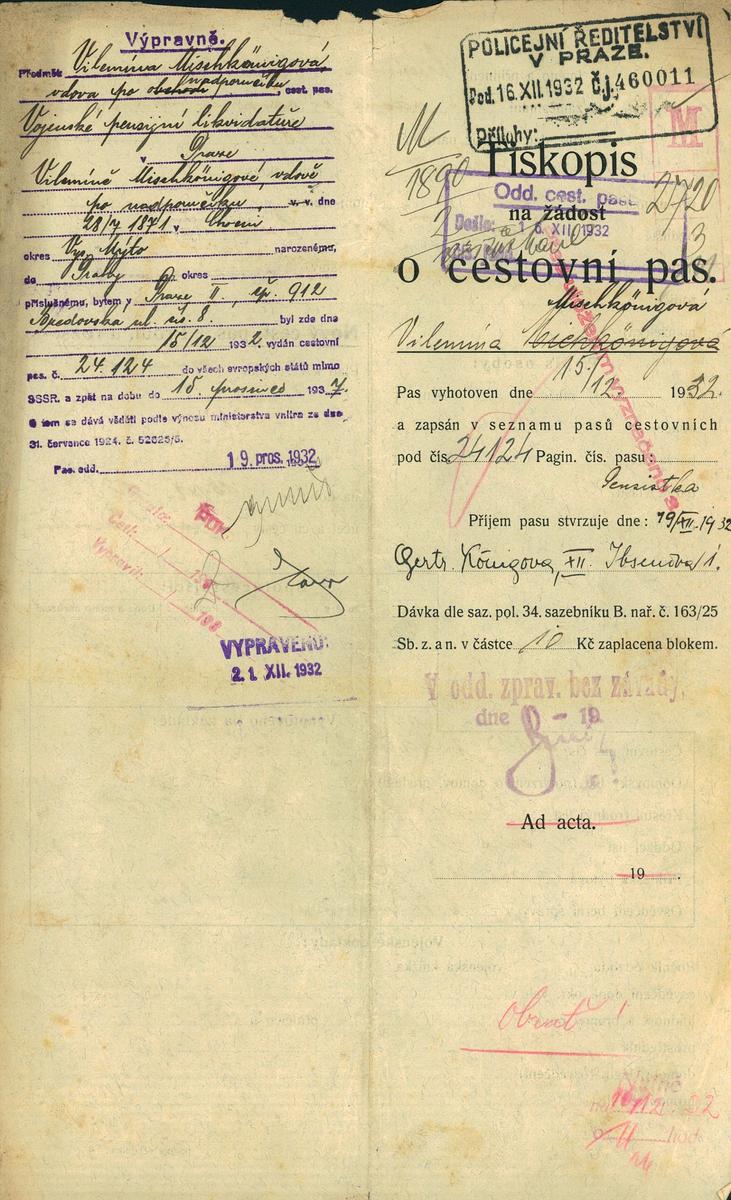 Výpravně.
Předmět: Vilemína Mischkönigová,
vdova po obchodí nadporučíku, cest. pas.
Vojenské pensijní likvidatuře
v Praze
Vilemíně Mischkönigové, vdově
po nadporučíku, v. v. dne
28/7 1871 v Chocni
okres Vys. Mýto narozenému,
do Prahy okres
příslušnému, bytem v Praze II, čp. 912
Bredovská ul. čís. 8. byl zde dne
15/12 1932. vydán cestovní
pas č. 24.124 do všech evropských států mimo
SSSR. a zpět na dobu do 15. prosince 1937.
O tom se dává věděti podle výnosu ministerstva vnitra ze dne
31. července 1924. č. 52625/5.
Pas. odd. 19. pros. 1932
VYPRAVENO:
21. XII. 1932
POLICEJNÍ ŘEDITELSTVÍ
V PRAZE.
Pod. 16. XII. 1932 Čj. 460011
Přílohy:
M
1890
Tiskopis
Odd. cest. pas.
2720
na žádost
Došlo: 16. XII. 1932
o cestovní pas.
Mischkönigová
Vilemína
15/12
Pas vyhotoven dne 1932.
a zapsán v seznamu pasů cestovních
pod čís. 24124 Pagin. čís. pasu:
Pensistka
Příjem pasu stvrzuje dne: 19/XII. 1932
Gertr. Königova, XII. Ibsenova 1.
Dávka dle saz. pol. 34. sazebníku B. nař. č. 163/25
Sb. z. a n. v částce 10 Kč zaplacena blokem.
V odd. zprav. bez závady.
dne 19
Ad acta.
19
Obrať!